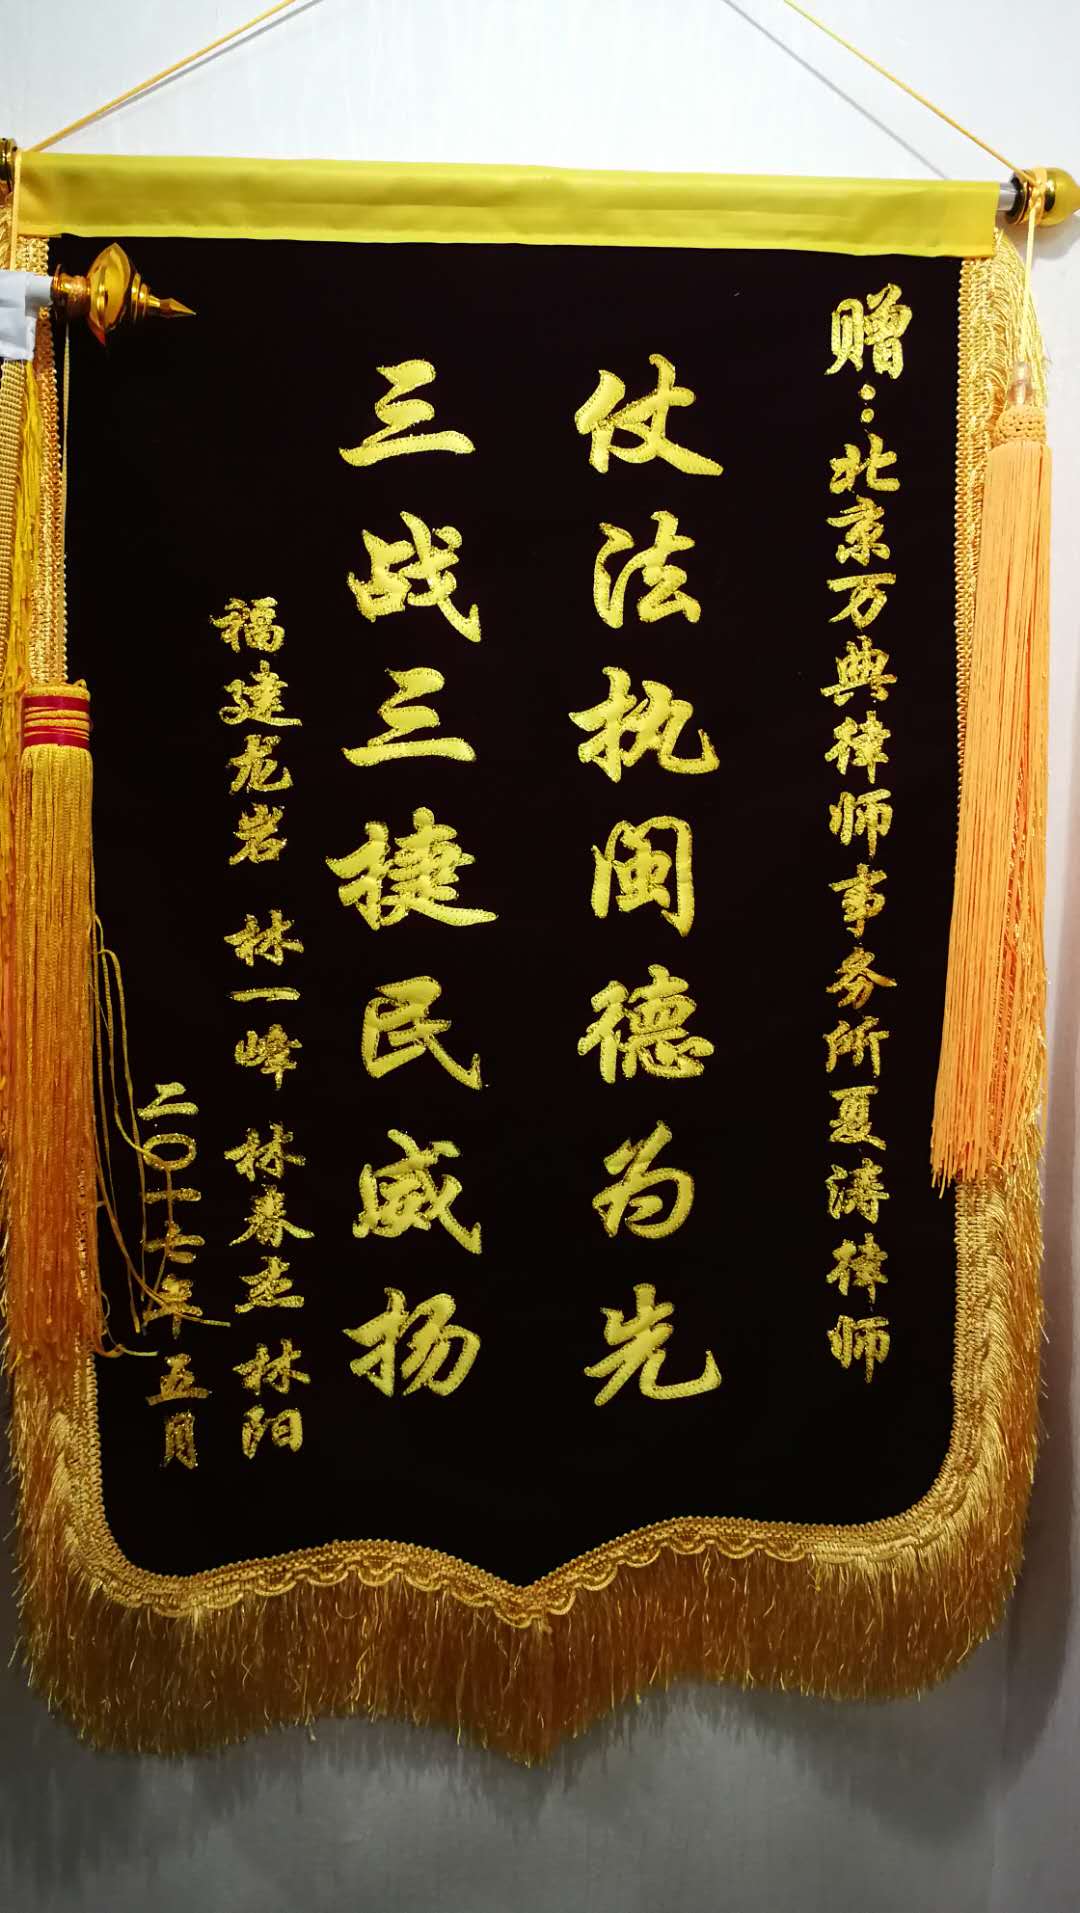 赠：北京万典律师事务所夏涛律师
仗法执闽德为先
三战三捷民威扬
福建龙岩 林一峰 林春杰 林阳
二〇一七年五月